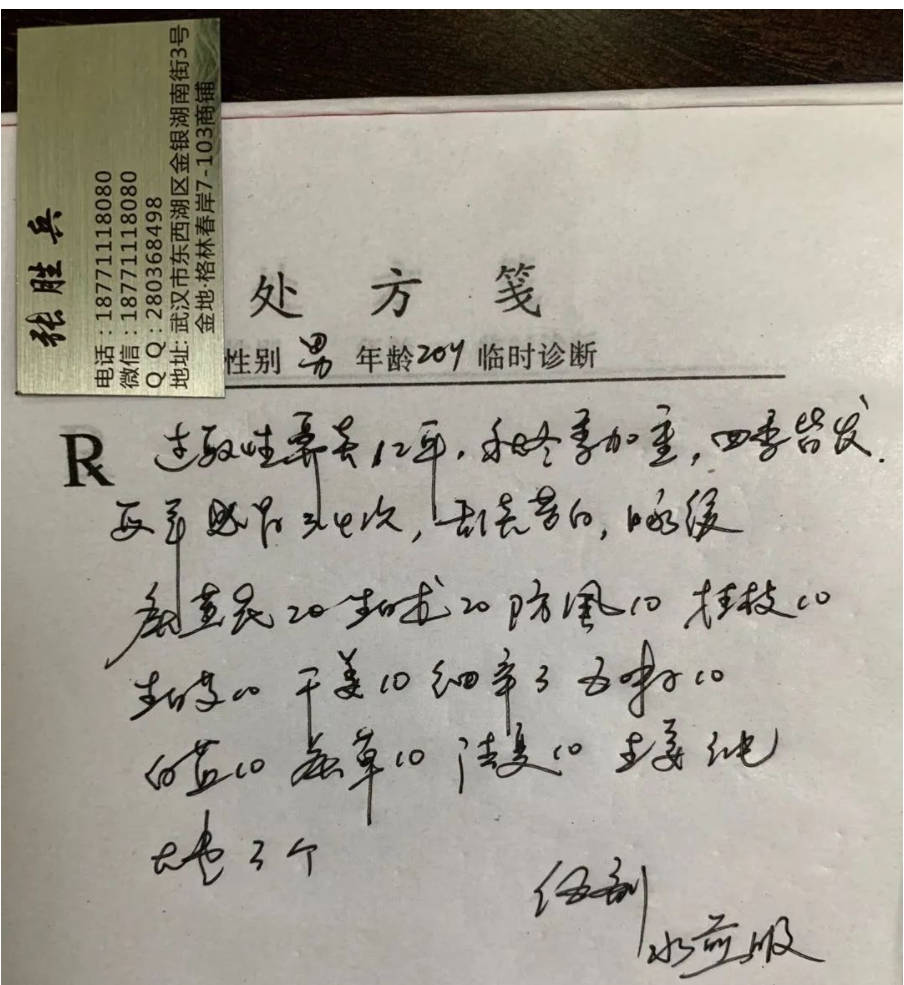 张胜兵
电话：18771118080
微信：18771118080
Q Q：280368498
地址: 武汉市东西湖区金银湖南街3号
金地·格林春岸7-103商铺
处方笺
性别 男 年龄20岁 临时诊断
R 过敏性鼻炎12年，秋冬季加重，四季皆发.
每年感冒3、4次，舌淡苔白，脉缓
炙黄芪20 生白术20 防风10 桂枝10
生白芍10 干姜10 细辛3 五味子10
白芷10 炙草10 法夏10 生姜
大枣3个
伍剂
水煎服